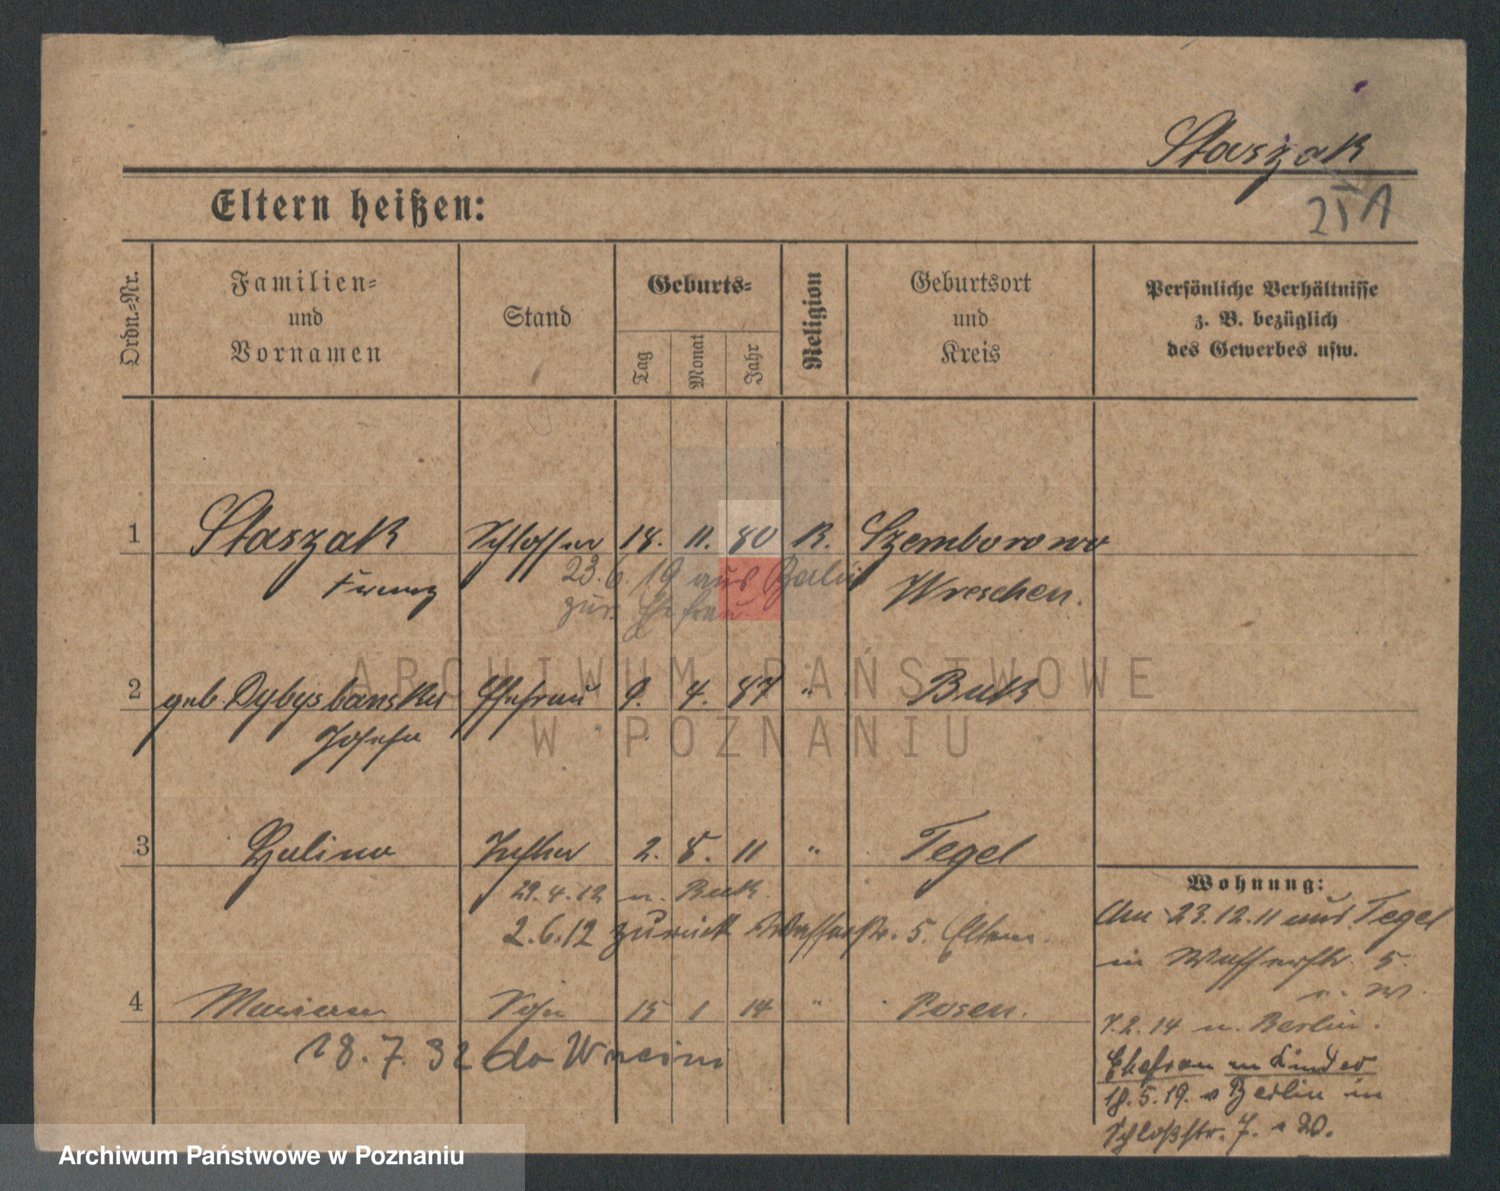 Staszak
25 A
Eltern heißen:
Ordn.=Nr.
Familien=
und
Vornamen
Stand
Geburts=
Tag
Monat
Jahr
Religion
Geburtsort
und
Kreis
Persönliche Verhältnisse
z. B. bezüglich
des Gewerbes usw.
1 Staszak Schlosser 18. 11. 80 K. Szemborowo
Franz Wreschen.
23.6.19 aus Berlin
zur. Ehefrau
2 geb. Dybysbanska Ehefrau 9. 4. 87 " Buk
Josefa
3 Halina Tochter 2. 8. 11 " Tegel
29.4.12 n. Buk
2.6.12 zurück Wasserstr. 5. Eltern.
4 Marian Sohn 15 1 14 " Posen.
18.7.32 do
Wohnung:
Am 23.12.11 aus Tegel
in Wasserstr. 5.
7.2.14 n. Berlin.
Ehefrau u Kinder
18.5.19. v Berlin in
Schloßstr. 7.
ARCHIWUM PAŃSTWOWE
W POZNANIU
Archiwum Państwowe w Poznaniu